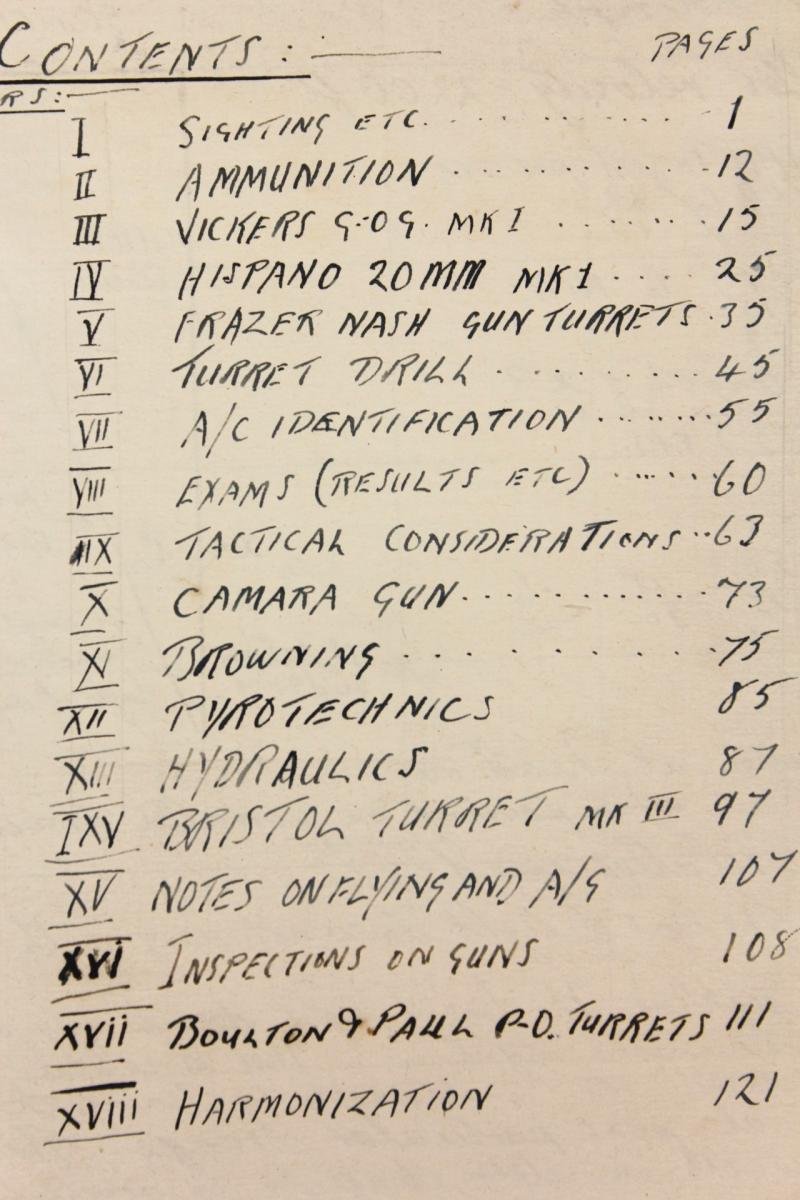 CONTENTS: PAGES
RS:
I SIGHTING ETC. 1
II AMMUNITION 12
III VICKERS G.O.G. MK I 15
IV HISPANO 20MM MK1 25
V FRAZER NASH GUN TURRETS 35
VI TURRET DRILL 45
VII A/C IDENTIFICATION 55
VIII EXAMS (RESULTS ETC) 60
IX TACTICAL CONSIDERATIONS 63
X CAMARA GUN 73
XI BROWNING 75
XII PYROTECHNICS 85
XIII HYDRAULICS 87
IXV BRISTOL TURRET MK III 97
XV NOTES ON FLYING AND A/G 107
XVI INSPECTIONS ON GUNS 108
XVII BOULTON & PAUL P-D. TURRETS 111
XVIII HARMONIZATION 121